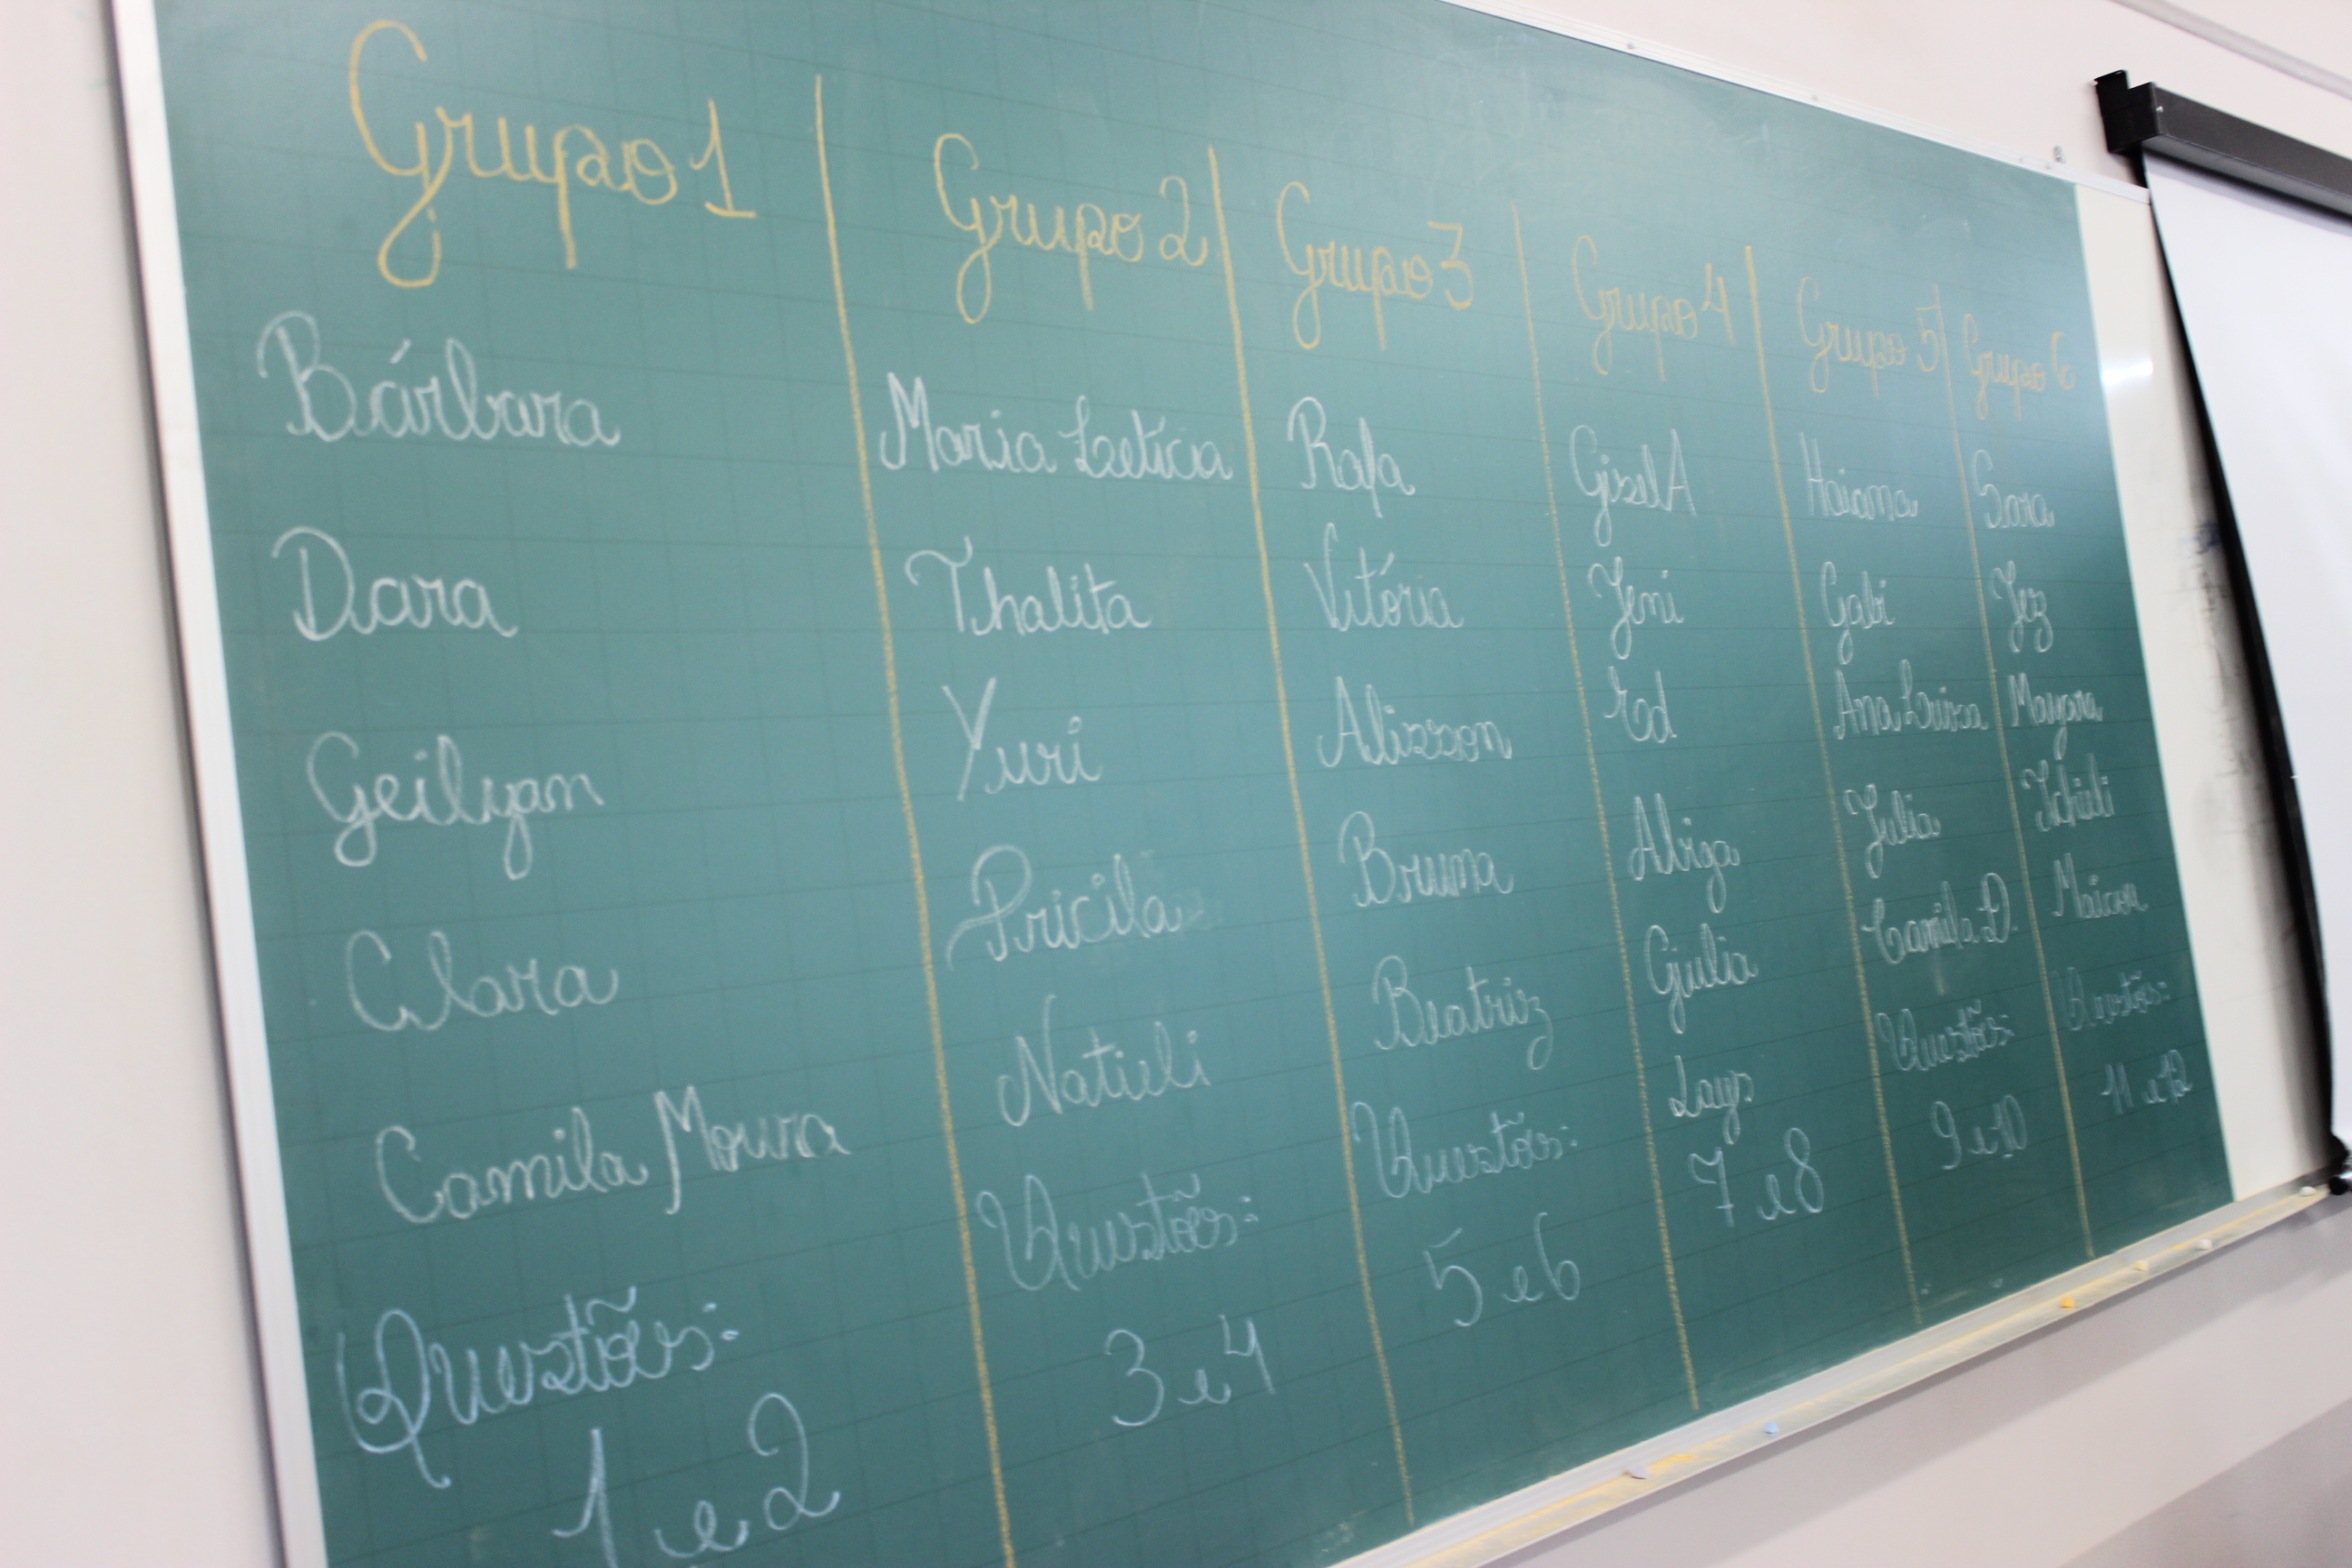 Grupo 1
Bárbara
Dara
Geilyan
Clara
Camila Moura
Questões:
1 e 2
Grupo 2
Maria Letícia
Thalita
Yuri
Pricila
Natieli
Questões:
3 e 4
Grupo 3
Rafa
Vitória
Alisson
Bruna
Beatriz
Questões:
5 e 6
Grupo 4
GiselA
Jeni
Ed
Abiga
Giulia
Lays
7 e 8
Grupo 5
Haiama
Gabi
Ana Luiza
Julia
Camila D.
Questões:
9 e 10
Grupo 6
Sara
Jez
Mayara
Maicon
Questões:
11 e 12